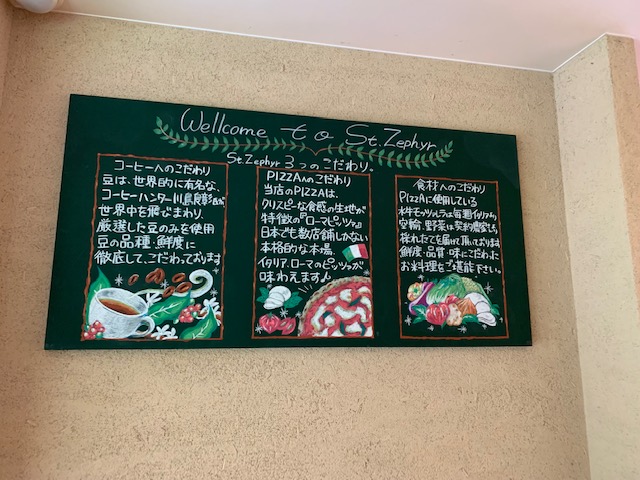 Wellcome to St.Zephyr
St.Zephyr 3つのこだわり。
コーヒーへのこだわり
豆は、世界的に有名な、
コーヒーハンター川島良彰氏が
世界中を飛びまわり、
厳選した豆のみを使用
豆の品種・鮮度に
徹底して、こだわっております
PIZZAへのこだわり
当店のPIZZAは、
クリスピーな食感の生地が
特徴の『ローマピッツァ』
日本でも数店舗しかない
本格的な本場、
イタリア、ローマのピッツァが
味わえます！
食材へのこだわり
PIZZAに使用している
水牛モッツァレラは毎週イタリアから
空輸、野菜は契約農家から
採れたてを届けて頂いております
鮮度・品質・味にこだわった
お料理をご堪能下さい。